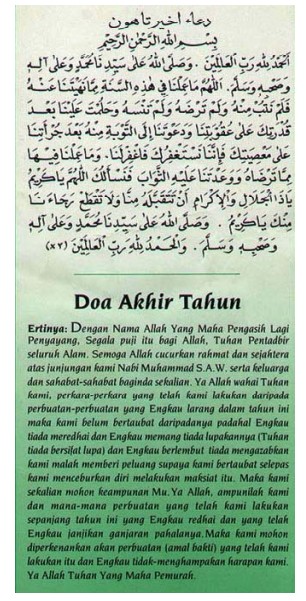 دعاء اخير تاهون
بِسْمِ اللهِ الرَّحْمٰنِ الرَّحِيْمِ
اَلْحَمْدُ لِلّٰهِ رَبِّ الْعَالَمِيْنَ. وَصَلَّى اللهُ عَلَى سَيِّدِنَا مُحَمَّدٍ وَعَلَى آلِهِ
وَصَحْبِهِ وَسَلَّمَ. اَللّٰهُمَّ مَا عَمِلْنَا فِي هٰذِهِ السَّنَةِ مِمَّا نَهَيْتَنَا عَنْهُ
فَلَمْ نَتُبْ مِنْهُ وَلَمْ تَرْضَهُ وَلَمْ تَنْسَهُ وَحَلِمْتَ عَلَيْنَا بَعْدَ
قُدْرَتِكَ عَلَى عُقُوْبَتِنَا وَدَعَوْتَنَا إِلَى التَّوْبَةِ مِنْهُ بَعْدَ جُرْأَتِنَا
عَلَى مَعْصِيَتِكَ فَإِنَّا نَسْتَغْفِرُكَ فَاغْفِرْلَنَا. وَمَا عَمِلْنَا فِيْهَا
مِمَّا تَرْضَاهُ وَوَعَدْتَنَا عَلَيْهِ الثَّوَابَ فَنَسْأَلُكَ اللّٰهُمَّ يَا كَرِيْمُ
يَا ذَا الْجَلَالِ وَالْإِكْرَامِ أَنْ تَتَقَبَّلَهُ مِنَّا وَلَا تَقْطَعْ رَجَاءَنَا
مِنْكَ يَا كَرِيْمُ. وَصَلَّى اللهُ عَلَى سَيِّدِنَا مُحَمَّدٍ وَعَلَى آلِهِ
وَصَحْبِهِ وَسَلَّمَ. وَالْحَمْدُ لِلّٰهِ رَبِّ الْعَالَمِيْنَ (×٣)
Doa Akhir Tahun
Ertinya: Dengan Nama Allah Yang Maha Pengasih Lagi
Penyayang, Segala puji itu bagi Allah, Tuhan Pentadbir
seluruh Alam. Semoga Allah cucurkan rahmat dan sejahtera
atas junjungan kami Nabi Muhammad S.A.W. serta keluarga
dan sahabat-sahabat baginda sekalian. Ya Allah wahai Tuhan
kami, perkara-perkara yang telah kami lakukan daripada
perbuatan-perbuatan yang Engkau larang dalam tahun ini
maka kami belum bertaubat daripadanya padahal Engkau
tiada meredhai dan Engkau memang tiada lupakannya (Tuhan
tiada bersifat lupa) dan Engkau berlembut tiada mengazabkan
kami malah memberi peluang supaya kami bertaubat selepas
kami menceburkan diri melakukan maksiat itu. Maka kami
sekalian mohon keampunan Mu.Ya Allah, ampunilah kami
dan mana-mana perbuatan yang telah kami lakukan
sepanjang tahun ini yang Engkau redhai dan yang telah
Engkau janjikan ganjaran pahalanya.Maka kami mohon
diperkenankan akan perbuatan (amal bakti) yang telah kami
lakukan itu dan Engkau tidak-menghampakan harapan kami.
Ya Allah Tuhan Yang Maha Pemurah.